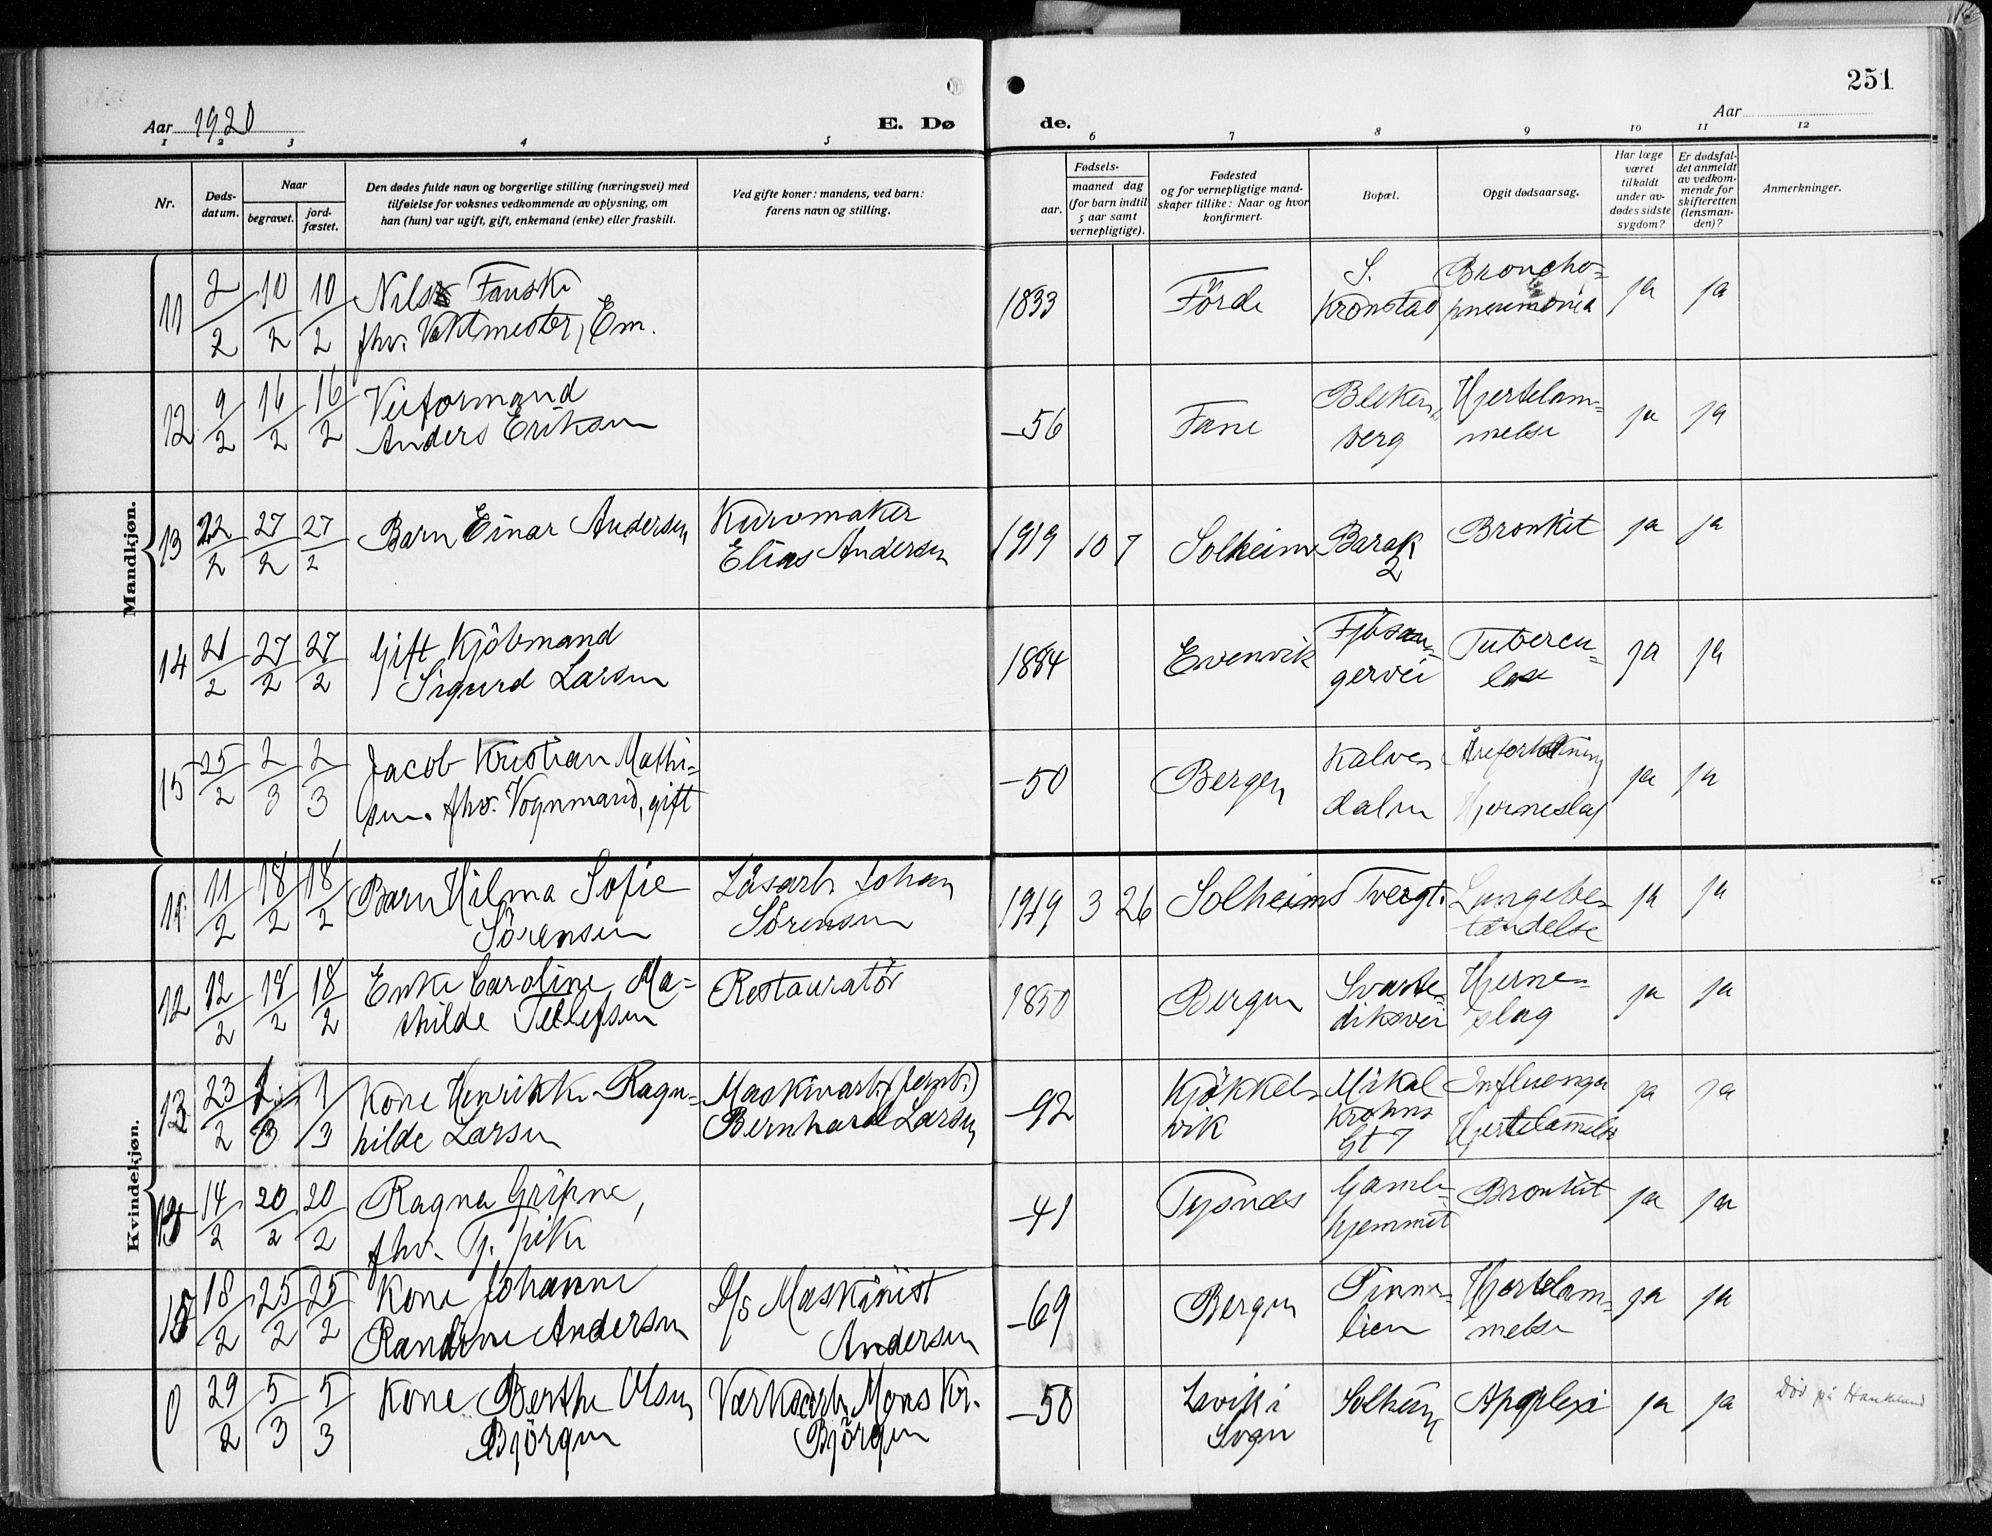 251
Aar 1920
E. Dø
de.
Aar
1 2 3 4 5 6 7 8 9 10 11 12
Nr.
Døds-
datum.
Naar
begravet.
jord-
fæstet.
Den dødes fulde navn og borgerlige stilling (næringsvei) med
tilføielse for voksnes vedkommende av oplysning, om
han (hun) var ugift, gift, enkemand (enke) eller fraskilt.
Ved gifte koner: mandens, ved barn:
farens navn og stilling.
Fødsels-
aar.
maaned dag
(for barn indtil
5 aar samt
vernepligtige).
Fødested
og for vernepligtige mand-
skaper tillike: Naar og hvor
konfirmert.
Bopæl.
Opgit dødsaarsag.
Har læge
været
tilkaldt
under av-
dødes sidste
sygdom?
Er dødsfal-
det anmeldt
av vedkom-
mende for
skifteretten
(lensman-
den)?
Anmerkninger.
Mandkjøn.
11 2/2 10/2 10/2 Nils Fauske
fhv. Vaktmester, Em.
1833 Förde S.
Kronstad
Broncho-
pneumonia
ja ja
12 9/2 16/2 16/2 Veiformand
Anders Eriksen
-56 Fane Bleken-
berg
Hjertelam-
melse
ja ja
13 22/2 27/2 27/2 Barn Einar Andersen
Kurvmaker
Elias Andersen
1919 10 7 Solheim Barak
2
Bronkit ja ja
14 21/2 27/2 27/2 Gift Kjöbmand
Sigurd Larsen
1884 Evenvik Fjösan-
gervei
Tubercu-
lose
ja ja
15 25/2 2/3 2/3 Jacob Kristian Mathi-
sen. fhv. Vognmand, gift
-50 Bergen Kalve-
dalen
Åreforkalkning
Hjerneslag
ja ja
Kvindekjøn.
11 11/2 18/2 18/2 Barn Hilma Sofie
Sörensen
Løsarb. Johan
Sörensen
1919 3 26 Solheims Tvergt. Lungebe-
tændelse
ja ja
12 12/2 18/2 18/2 Enke Caroline Ma-
thilde Tellefsen
Restauratør
1850 Bergen Svarte-
diksvei
Hjerne-
slag
ja ja
13 23/2 1/3 1/3 Kone Henrikke Ragn-
hilde Larsen
Maskinarb. (jernb.)
Bernhard Larsen
-92 Kjökkel-
vik
Mikal
Krohns
Gt 7
Influenza
Hjertelammelse
ja ja
14/2 20/2 20/2 Ragna Gripne,
fhv. Tj. pike
-41 Tysnes Gamle-
hjemmet
Bronkit ja ja
15 18/2 25/2 25/2 Kone Johanne
Randine Andersen
D/s Maskinist
Andersen
-69 Bergen Pinne-
lien
Hjertelam-
melse
ja ja
0 29/2 5/3 5/3 Kone Berthe Olsen
Björgen
Værksarb. Mons Kr.
Björgen
-50 Lavik i
Sogn
Solheim Apoplexi ja ja Död på Haukeland